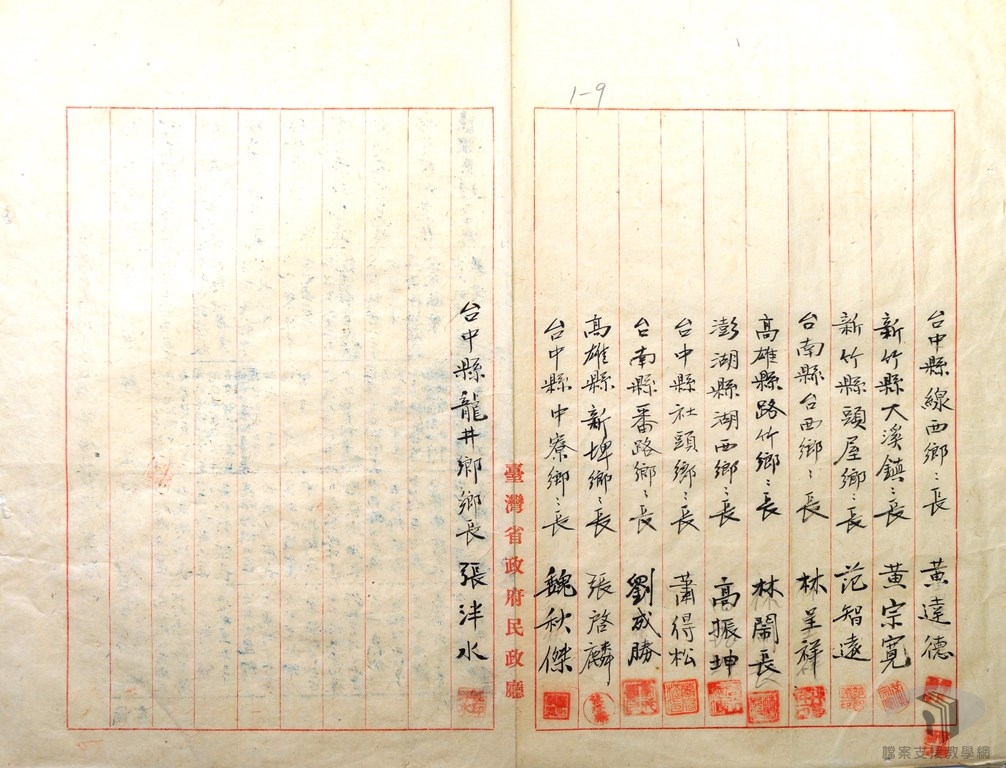 1-9
台中縣線西鄉〻長 黃達德
新竹縣大溪鎮〻長 黃宗寬
新竹縣頭屋鄉〻長 范智遠
台南縣台西鄉〻長 林呈祥
高雄縣路竹鄉〻長 林鬧長
澎湖縣湖西鄉〻長 高振坤
台中縣社頭鄉〻長 蕭得松
台南縣番路鄉〻長 劉成勝
高雄縣新埤鄉〻長 張啓麟
台中縣中寮鄉〻長 魏秋傑
臺灣省政府民政廳
台中縣龍井鄉鄉長 張泮水
檔案支援教學網